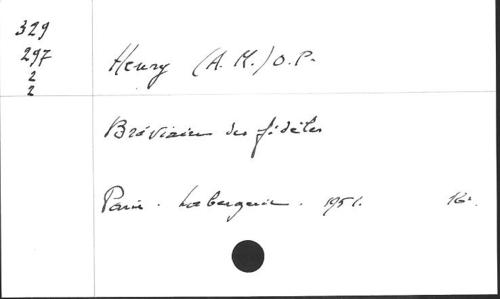 329
297
2
2
Henry (A. M.) O.P.
Bréviaire des fidèles
Paris. Labergerie. 1951. 16°.